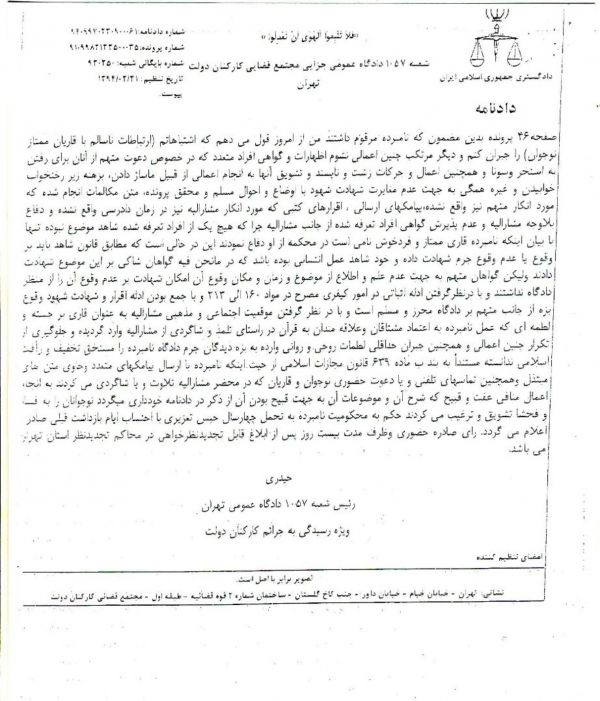 «فلا تتبعوا الهوی ان تعدلوا»
شعبه ۱۰۵۷ دادگاه عمومی جزایی مجتمع قضایی کارکنان دولت
تهران
شماره دادنامه:
شماره پرونده:
شماره بایگانی شعبه: ۹۳۰۲۵۰
تاریخ تنظیم:
پیوست:
دادگستری جمهوری اسلامی ایران
دادنامه
صفحه۴۶ پرونده بدین مضمون که نامبرده مرقوم داشتند من از امروز قول می دهم که اشتباهاتم (ارتباطات ناسالم با قاریان ممتاز
نوجوان) را جبران کنم و دیگر مرتکب چنین اعمالی نشوم اظهارات و گواهی افراد متعدد که در خصوص دعوت متهم از آنان برای رفتن
به استخر وسونا و همچنین اعمال و حرکات زشت و ناپسند و تشویق آنها به انجام اعمالی از قبیل ماساژ دادن، برهنه زیر رختخواب
خوابیدن و غیره همگی به جهت عدم مغایرت شهادت شهود با اوضاع و احوال مسلم و محقق پرونده، متن مکالمات انجام شده که
مورد انکار متهم نیز واقع نشده، پیامکهای ارسالی ، اقرارهای کتبی که مورد انکار مشارالیه نیز در زمان دادرسی واقع نشده و دفاع
بلاوجه مشارالیه و عدم پذیرش گواهی افراد تعرفه شده از جانب مشارالیه چرا که هیچ یک از افراد تعرفه شده شاهد موضوع نبوده تنها
با بیان اینکه نامبرده قاری ممتاز و فردخوش نامی است در محکمه از او دفاع نمودند این در حالی است که مطابق قانون شاهد باید بر
وقوع یا عدم وقوع جرم شهادت داده و خود شاهد عمل انتسابی بوده باشد که در مانحن فیه گواهان شاکی بر این موضوع شهادت
دادند ولیکن گواهان متهم به جهت عدم علم و اطلاع از موضوع و زمان و مکان وقوع آن امکان شهادت بر عدم وقوع آن را از منظر
دادگاه نداشتند و با درنظرگرفتن ادله اثباتی در امور کیفری مصرح در مواد ۱۶۰ الی ۲۱۳ و با جمع بودن ادله اقرار و شهادت شهود وقوع
بزه از جانب متهم بر دادگاه محرز و مسلم است و با در نظر گرفتن موقعیت اجتماعی و مذهبی مشارالیه به عنوان قاری بر جسته و
لطمه ای که عمل نامبرده به اعتماد مشتاقان وعلاقه مندان به قرآن در راستای تلمذ و شاگردی از مشارالیه وارد گردیده و جلوگیری از
تکرار چنین اعمالی و همچنین جبران حداقلی لطمات روحی و روانی وارده به بزه دیدگان جرم دادگاه نامبرده را مستحق تخفیف و رأفت
اسلامی ندانسته مستنداً به بند ب ماده ۶۳۹ قانون مجازات اسلامی از حیث اینکه نامبرده با ارسال پیامکهای متعدد وحاوی متن های
مبتذل وهمچنین تماسهای تلفنی و یا دعوت حضوری نوجوان و قاریان که در محضر مشارالیه تلاوت و یا شاگردی می کردند به انجام
اعمال منافی عفت و قبیح که شرح آن و موضوعات آن به جهت قبیح بودن آن از ذکر در دادنامه خودداری میگردد نوجوانان را به فساد
و فحشا تشویق و ترغیب می کردند حکم به محکومیت نامبرده به تحمل چهارسال حبس تعزیری با احتساب ایام بازداشت قبلی صادر
اعلام می گردد. رای صادره حضوری وظرف مدت بیست روز پس از ابلاغ قابل تجدیدنظرخواهی در محاکم تجدیدنظر استان تهران
می باشد.
حیدری
رئیس شعبه ۱۰۵۷ دادگاه عمومی تهران
ویژه رسیدگی به جرائم کارکنان دولت
امضای تنظیم کننده
تصویر برابر با اصل است.
نشانی: تهران - خیابان خیام - خیابان داور- جنب کاخ گلستان - ساختمان شماره ۲ قوه قضائیه - طبقه اول - مجتمع قضائی کارکنان دولت